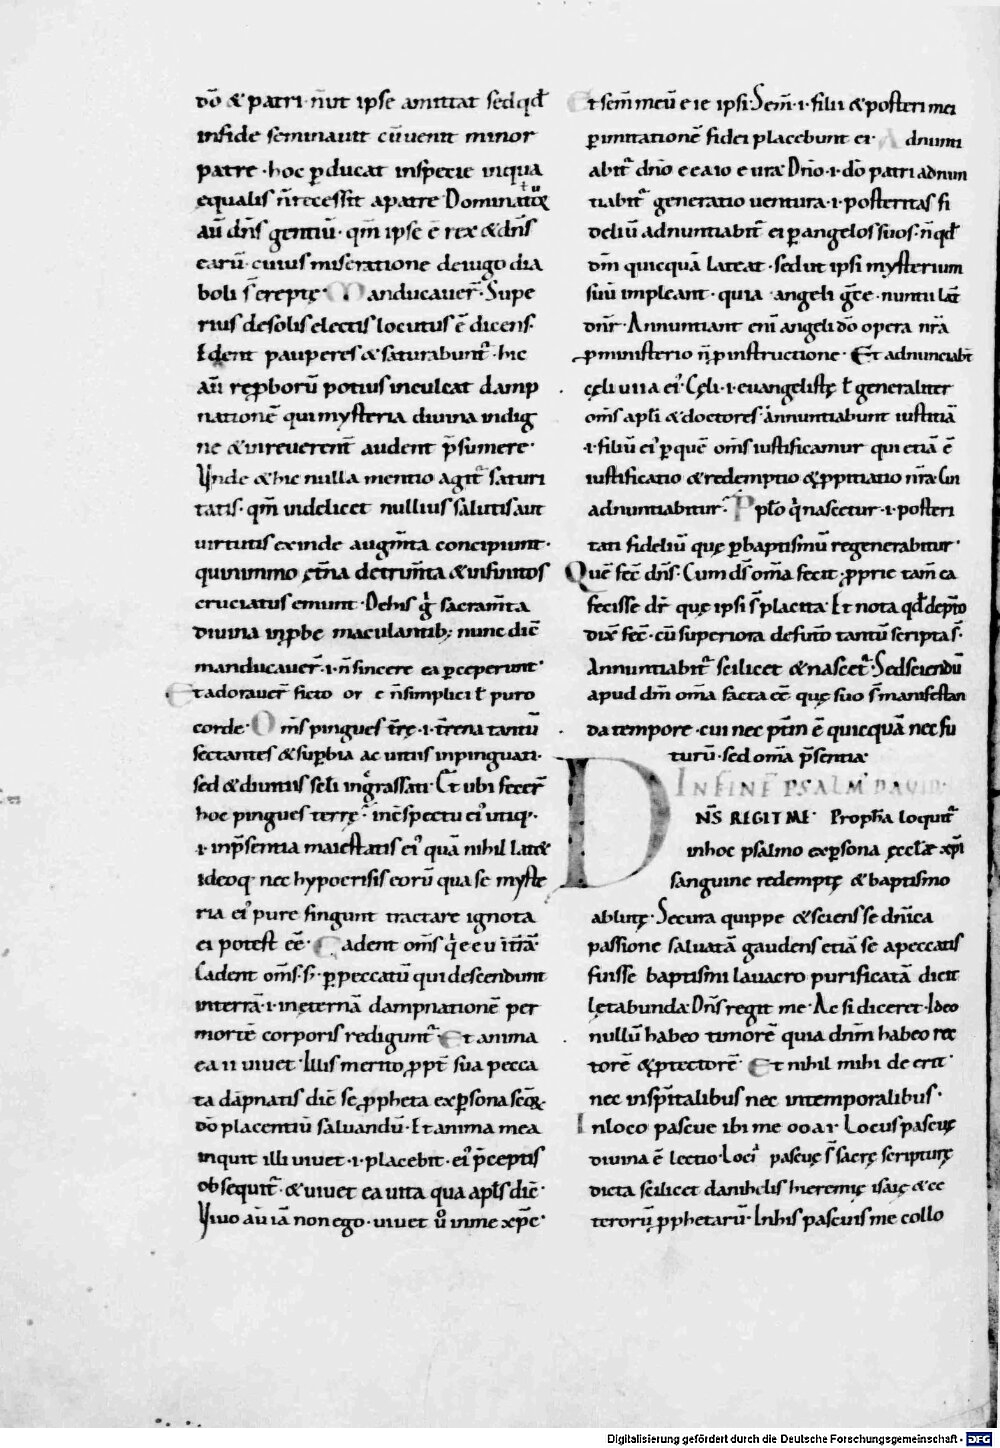 dō & patri· n̄ ut ipse amittat sed qd̄
in fide seminavit cū venit minor
patre· hoc p̱ducat in specie in qua
equalis n̄ recessit a patre Dominat̄
aū dn̄s gentiū· qm̄ ipse ē rex & dn̄s
earū· cuius miseratione de iugo dia
boli s̄ ereptę· Manducauer̄· Supe
rius de solis electis locutus ē dicens·
Edent pauperes & saturabunt̄· hic
aū rep̱borū potius inculcat damp
nationē qui mysteria diuina indig
ne & inreuerent̄ audent p̄sumere·
Vnde & hic nulla mentio agit̄ saturi
tatis· qm̄ uidelicet nullius salutis aut
uirtutis exinde augm̄ta concipiunt·
quinimmo ęt̄na detrim̄ta & infinitos
cruciatus emunt· De his g̊ sacram̄ta
diuina inp̱be maculantib; nunc dic̄
manducauer̄·i·n̄ sincere ea p̱ceperunt·
Et adorauer̄ ficto or e n̄ simplici ł puro
corde· Om̄s pingues t̄rę·i·t̄rena tantū
sectantes & sup̱bia ac uitiis inpinguati·
sed & diuitiis scl̄i ingrassati· Et ubi fecer̄
hoc pingues terrę· in c̄spectu ei᾽ utiq·
·i· in p̄sentia maiestatis ei᾽ quā nihil latet
ideoq· nec hypocrisis eorū qua se myste
ria ei᾽ pure fingunt tractare ignota
ei potest ēē· Cadent om̄s q̇ e e u i t̄rā·
Cadent om̄s· s· p̱ peccatū qui descendunt
in terrā·i·in ęternā dampnationē per
mortē corporis rediguntr̄· Et anima
ea ii uiuet· Illis merito p̱pt̄ sua pecca
ta dāpnatis dic̄ se p̱pheta ex p̱sona sēq̄
dō placentiū saluandū· Et anima mea
inquit illi uiuet·i·placebit· ei᾽ p̄ceptis
obsequit̄· & uiuet ea uita qua apl̄s dic̄·
Viuo aū iā non ego· uiuet ů in me xp̄c·
Et sem̄ meū e ie ipsi· Sem̄·i·filii & posteri mei
p̱ imitationē fidei placebunt ei· Adnunti
abit̄ dn̄o e ea io e ura· Dn̄o·i·dō patri adnun
tiabit̄ generatio uentura·i·posteritas fi
deliū adnuntiabit̄ ei p̱ angelos suos· n̄ qd̄
dm̄ quicquā lateat· sed ut ipsi mysterium
suū impleant· quia angeli gc̄e· nuntii lat̄
dn̄r· Annuntiant eni angeli dō opera nr̄a
p̱ ministerio n̄ p̱ instructione· Et adnunciabt̄
cęli u i i a ei᾽· Cęli·i·euangelistę ł generaliter
om̄s apl̄i & doctores· Annuntiabunt iustitiā
·i·filiū ei᾽ p̱ quē om̄s iustificamur qui etiā ē
iustificatio & redemptio & p̱pitiatio nr̄a· Cui
adnuntiabitur· Pplō q̇ nascetur·i·posteri
tati fideliū quę p̱ baptismū regenerabitur·
Quē fec̄ dn̄s· Cum ds̄ om̄a fecit· p̱prie tam̄ ea
fecisse dr̄ quę ipsi s̄ placita· Et nota qd̄ de p̄to
dix̄ fec̄· cū superiora de futō tantū scripta s̄·
Annuntiabit̄ scilicet & nascet̄· Sed sciendū
apud dm̄ om̄a facta ēē quę suo s̄ manifestan
da tempore· cui nec p̄tm̄ ē quicquā nec fu
turū· sed om̄a p̄sentia·
IN FINĒ PSALM᾽ DAVID·
DN̄S REGIT ME· Proph̄a loquit̄
in hoc psalmo ex p̱sona ęccl̄ę xp̄i
sanguine redemptę & baptismo
ablutę· Secura quippe & sciens se dn̄ica
passione saluatā gaudens etiā se a peccatis
fuisse baptismi lauacro purificatā dicit
lętabunda· Dn̄s regit me· Ac si diceret· Ideo
nullū habeo timorē quia dn̄m habeo rec
torē & p̱tectorē· Et nihil mihi de erit·
nec in sp̄italibus nec in temporalibus·
In loco pascue ibi me o o a r· Locus pascuę
diuina ē lectio· Loci᾽ pascuę s̄ sacrę scripturę
dicta scilicet danihelis hieremię isaię & cę
terorū p̱phetarū· In his pascuis me collo
Digitalisierung gefördert durch die Deutsche Forschungsgemeinschaft - DFG